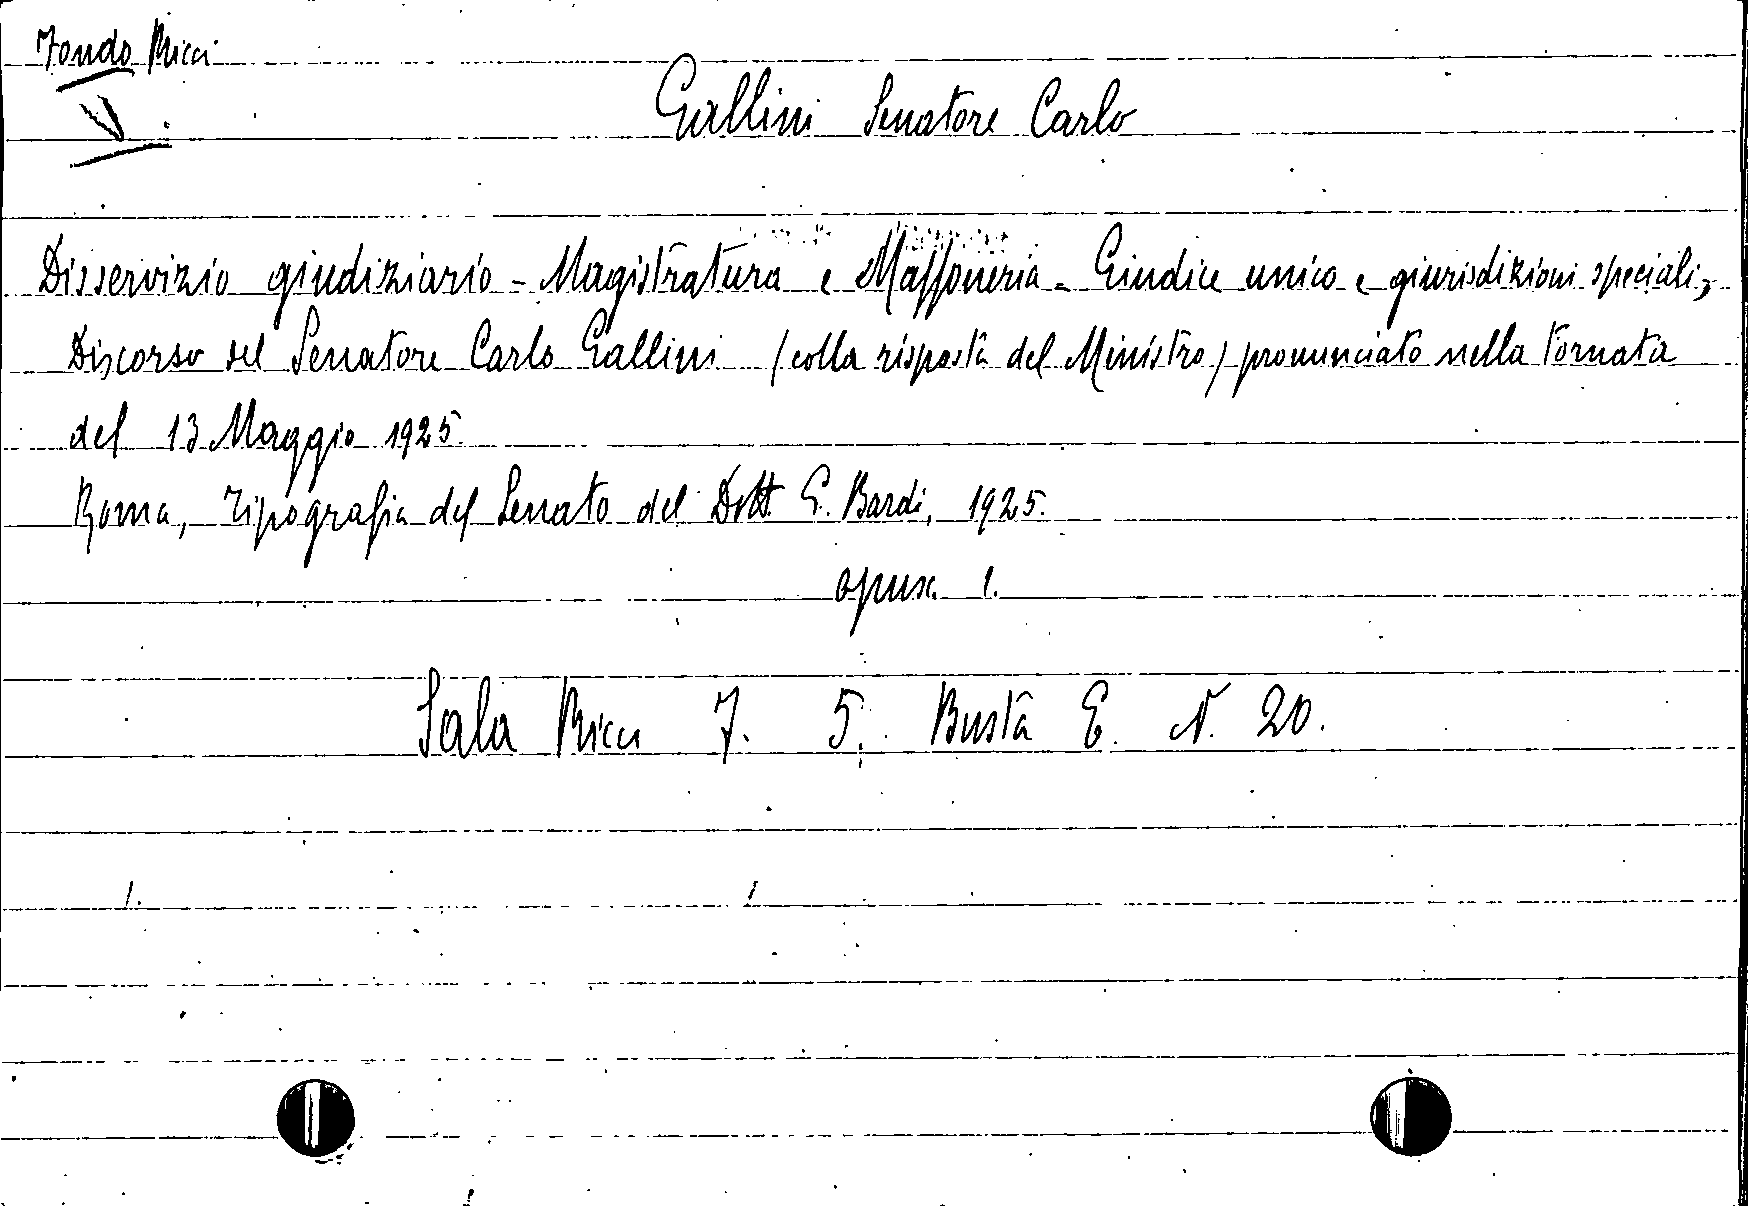 Fondo Ricci
V
Gallini Senatore Carlo
Disservizio giudiziario - Magistratura e Massoneria - Giudice unico e giurisdizioni speciali,
Discorso del Senatore Carlo Gallini (colla risposta del Ministro) pronunciato nella tornata
del 13 Maggio 1925.
Roma, Tipografia del Senato del Dott. G. Bardi, 1925.
opusc. 1.
Sala Ricci 7. 5. Busta E. N. 20.